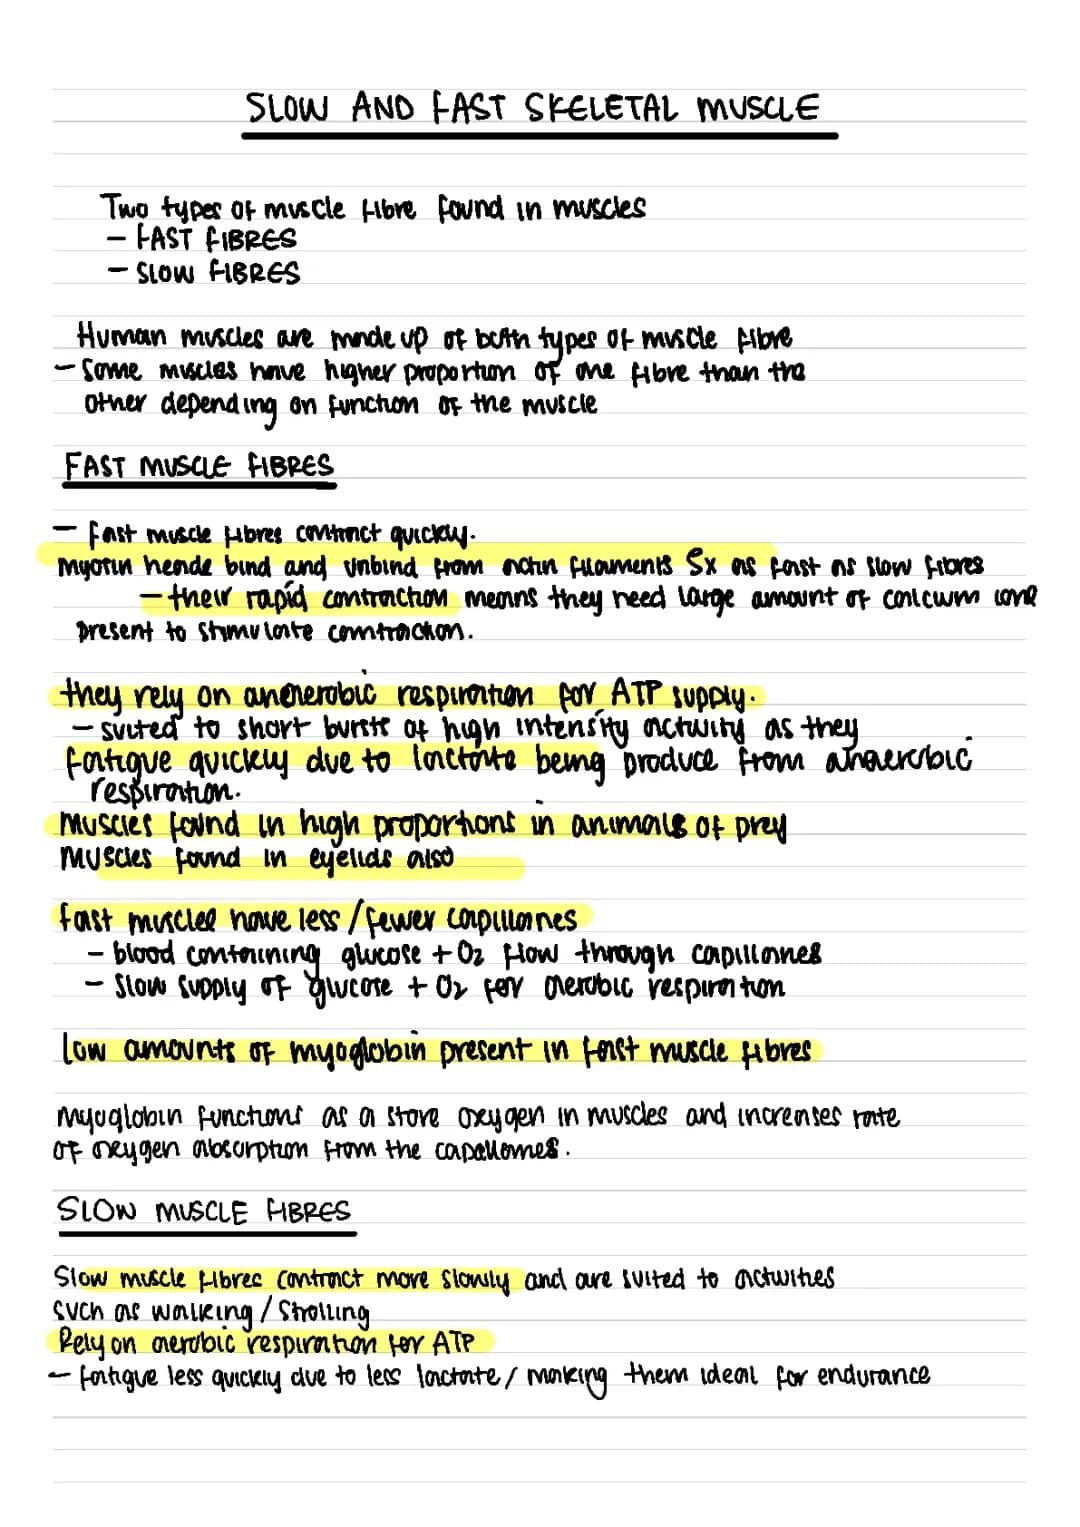 SLOW AND FAST SKELETAL MUSCLE
Two types of muscle fibre found in muscles
- FAST FIBRES
- SLOW FIBRES
Human muscles are made up of both types of muscle fibre
- Some muscles have higher proportion of one fibre than the
other depending on function of the muscle
FAST MUSCLE FIBRES
- fast muscle fibres contract quickly.
myosin heads bind and unbind from actin filaments 5x as fast as slow fibres
- their rapid contraction means they need large amount of calcium ions
present to stimulate contraction.
they rely on anaerobic respiration for ATP supply.
- suited to short bursts of high intensity activity as they
fatigue quickly due to lactate being produce from anaerobic
respiration.
Muscles found in high proportions in animals of prey
Muscles found in eyelids also
fast muscles have less/fewer capillaries
- blood containing glucose + O2 flow through capillaries
- Slow supply of glucose + O2 for aerobic respiration
Low amounts of myoglobin present in fast muscle fibres
Myoglobin functions as a store oxygen in muscles and increases rate
of oxygen absorption from the capillaries.
SLOW MUSCLE FIBRES
Slow muscle fibres contract more slowly and are suited to activities
such as walking/strolling
Rely on aerobic respiration for ATP
- fatigue less quickly due to less lactate/making them ideal for endurance